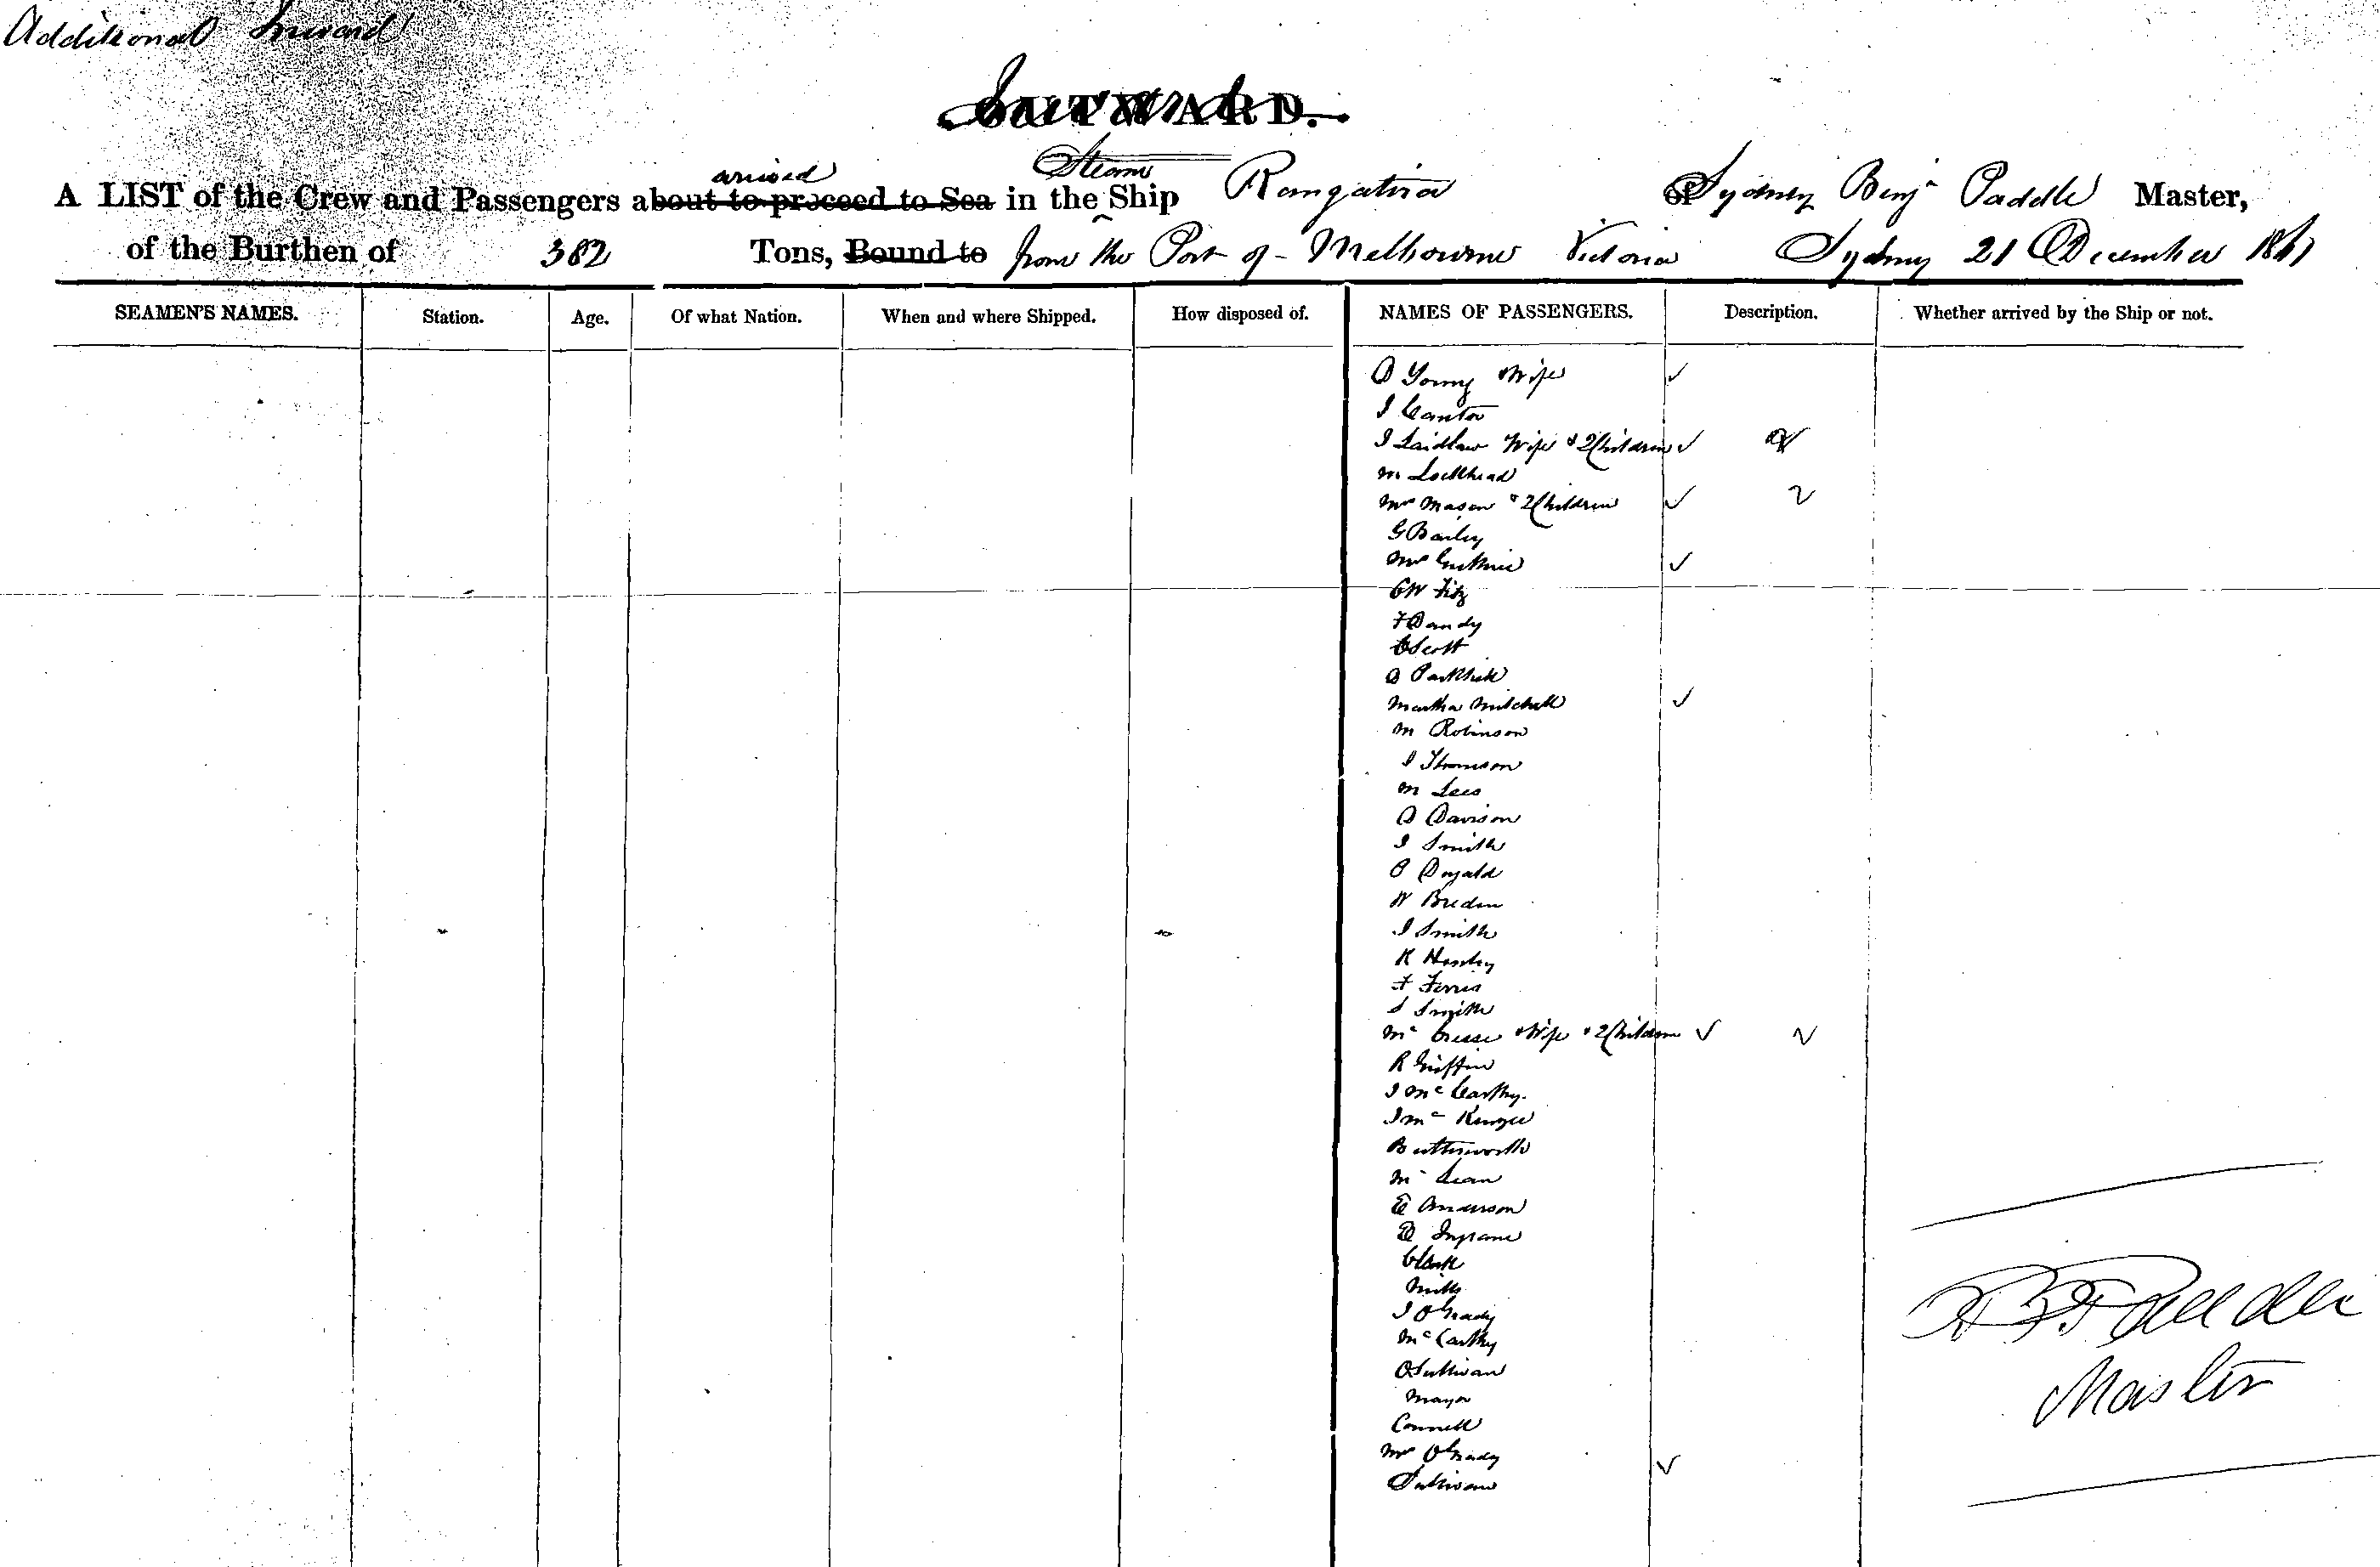 Additional Inward
Inwards
OUTWARD.
arrived Steam
A LIST of the Crew and Passengers about to proceed to Sea in the Ship Rangatira of Sydney Benjn Paddle Master,
of the Burthen of 382 Tons, Bound to from the Port of Melbourne Victoria Sydney 21 December 1861
SEAMEN'S NAMES. Station. Age. Of what Nation. When and where Shipped. How disposed of. NAMES OF PASSENGERS. Description. Whether arrived by the Ship or not.
D Young & Wife ✓
J Cantor
J Laidlaw Wife & 2 Children ✓ 2
M Lockhead
Mrs Mason & 2 Children ✓ 2
G Bailey
Mrs Guthrie ✓
G W Fitz
F Dandy
Scott
D
Martha Mitchell ✓
M Robinson
J Thomson
M Lees
D Davison
J Smith
D Donald
W Breden
J Smith
K
F Ferris
S Smith
Mr & Wife & 2 Children ✓ 2
R Griffin
J McCarthy
J McKenzie
Butterworth
McLean
E Anderson
Ingrame
Clark
Mills
J O'Grady
McCarthy
O'Sullivan
Mayor
Connell
Mrs O'Grady ✓
Sulivan
Master